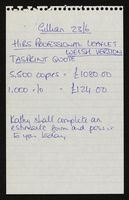 Gillian 23/6
HIRS PROFESSIONAL LEAFLET
WELSH VERSION
TASKPRINT QUOTE
5,500 copies = £1080.00
1,000 r/o = £124.00
Kathy shall complete an
estimate form and pass
to you today.